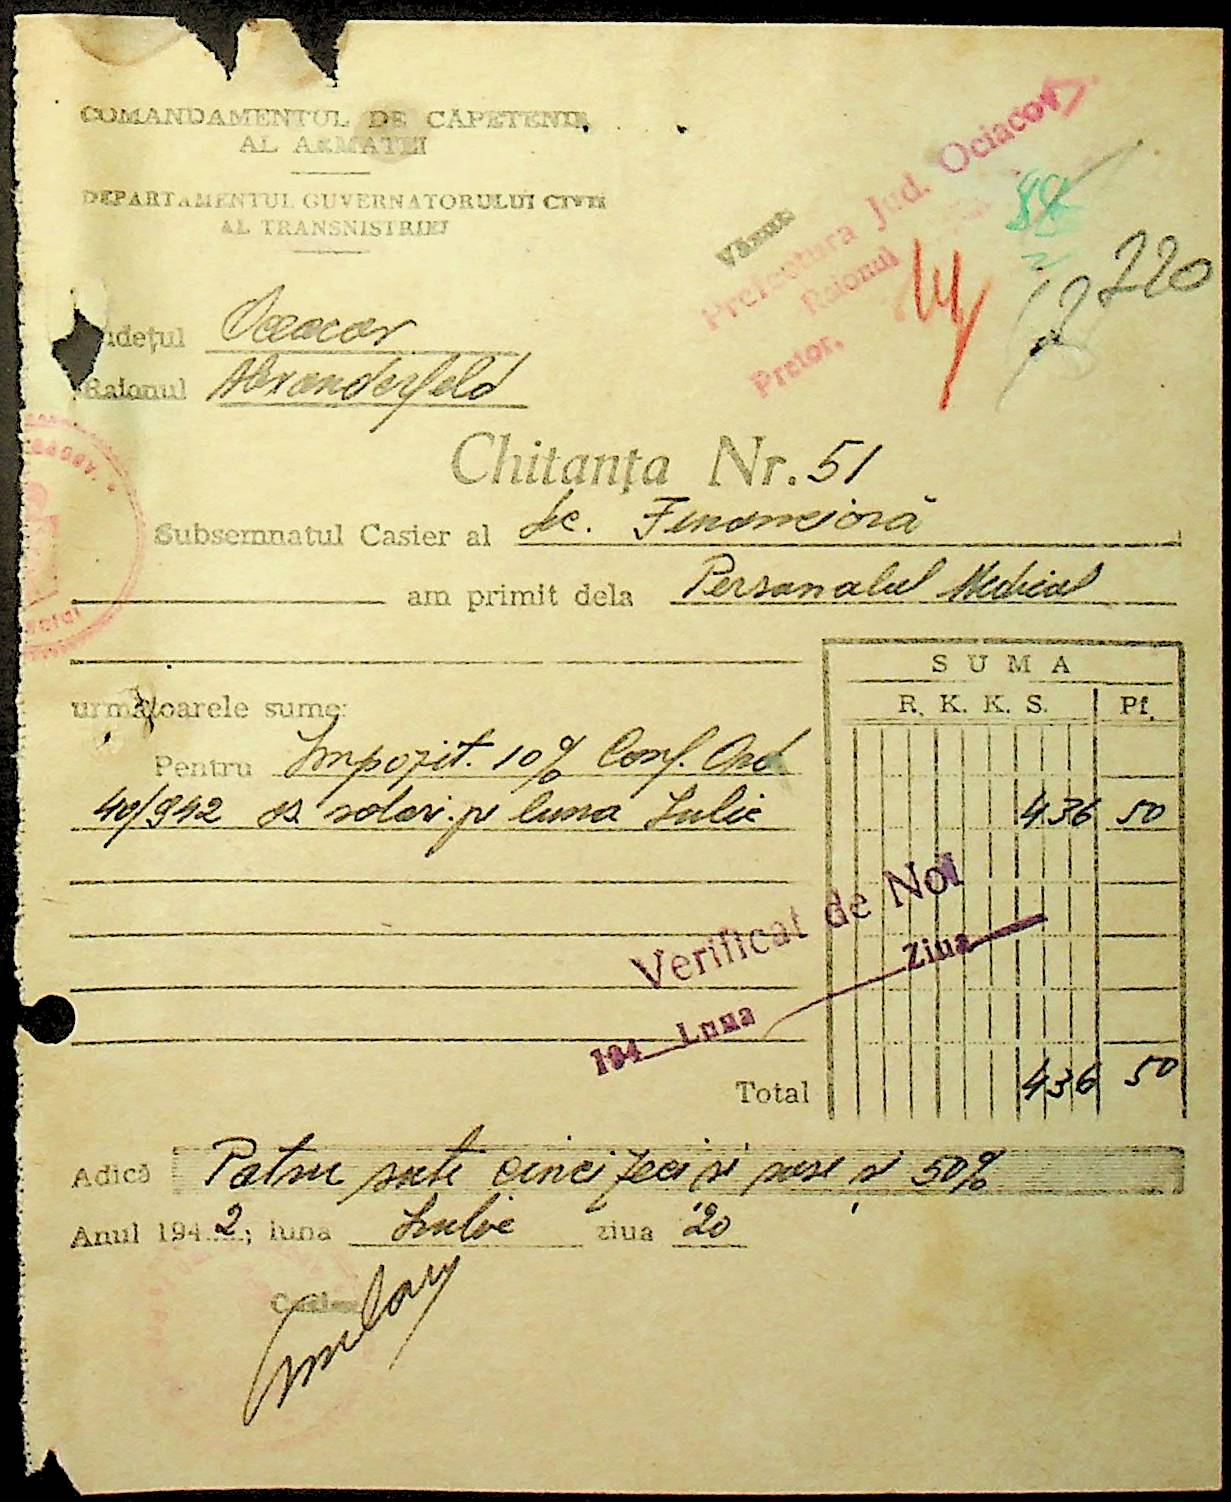 COMANDAMENTUL DE CĂPETENIE
AL ARMATEI
DEPARTAMENTUL GUVERNATORULUI CIVIL
AL TRANSNISTRIEI
Văzut
Prefectura Jud. Ociacov
Raionul
Pretor,
220
udețul Oceacov
Raionul Alexanderfeld
Chitanța Nr. 51
Subsemnatul Casier al Sc. Financiară
am primit dela Personalul Medical
SUMA
R. K. K. S. Pf.
următoarele sume:
Pentru Impozit. 10% Conf. Ord
40/942 salar. pe luna Iulie 436 50
Verificat de Noi
194 Luna Ziua
Total 436 50
Adică Patru sute cinci zeci și șase și 50%
Anul 1942; luna Iulie ziua 20
Casier